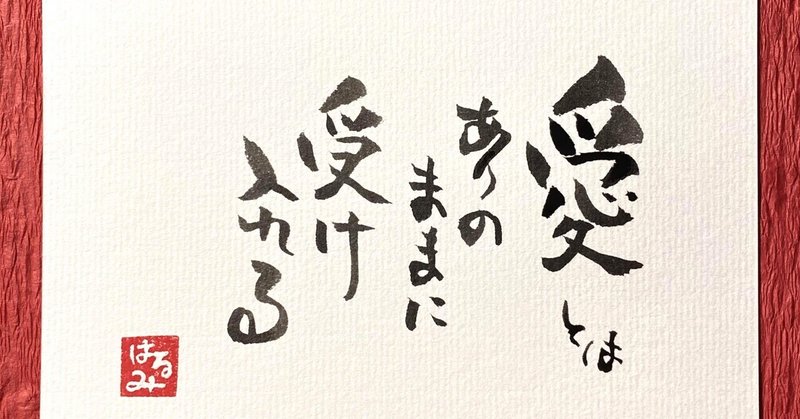 愛とは
ありの
ままに
受け
入れる
はるみ